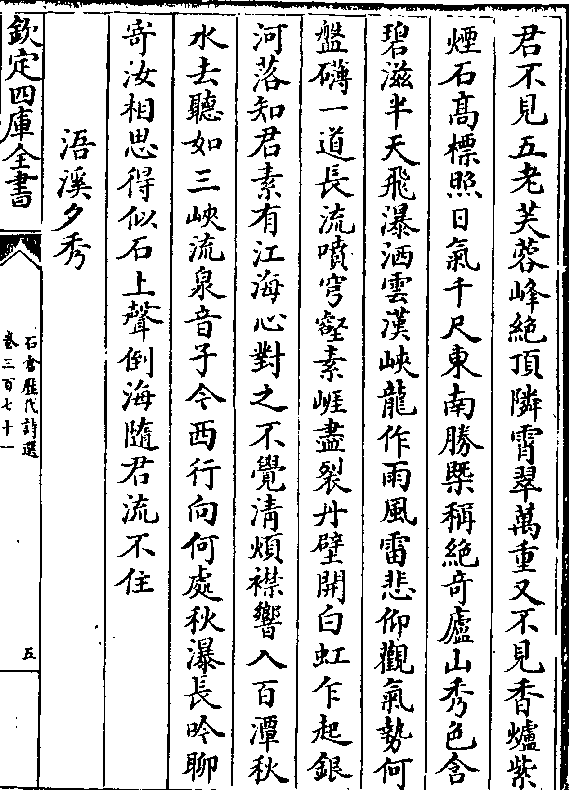 君不見五老芙蓉峰絶頂隣霄翠萬重又不見香爐紫
煙石高標照日氣千尺東南勝槩稱絶奇廬山秀色含
碧滋半天飛瀑洒雲漢峽龍作雨風雷悲仰觀氣勢何
盤礴一道長流噴穹壑素崕盡裂丹壁開白虹乍起銀
河落知君素有江海心對之不覺清煩襟響入百潭秋
水去聽如三峽流泉音子今西行向何處秋瀑長吟聊
寄汝相思得似石上聲倒海隨君流不住
浯溪夕秀
欽定四庫全書
石倉歷代詩選
卷三百七十一
五